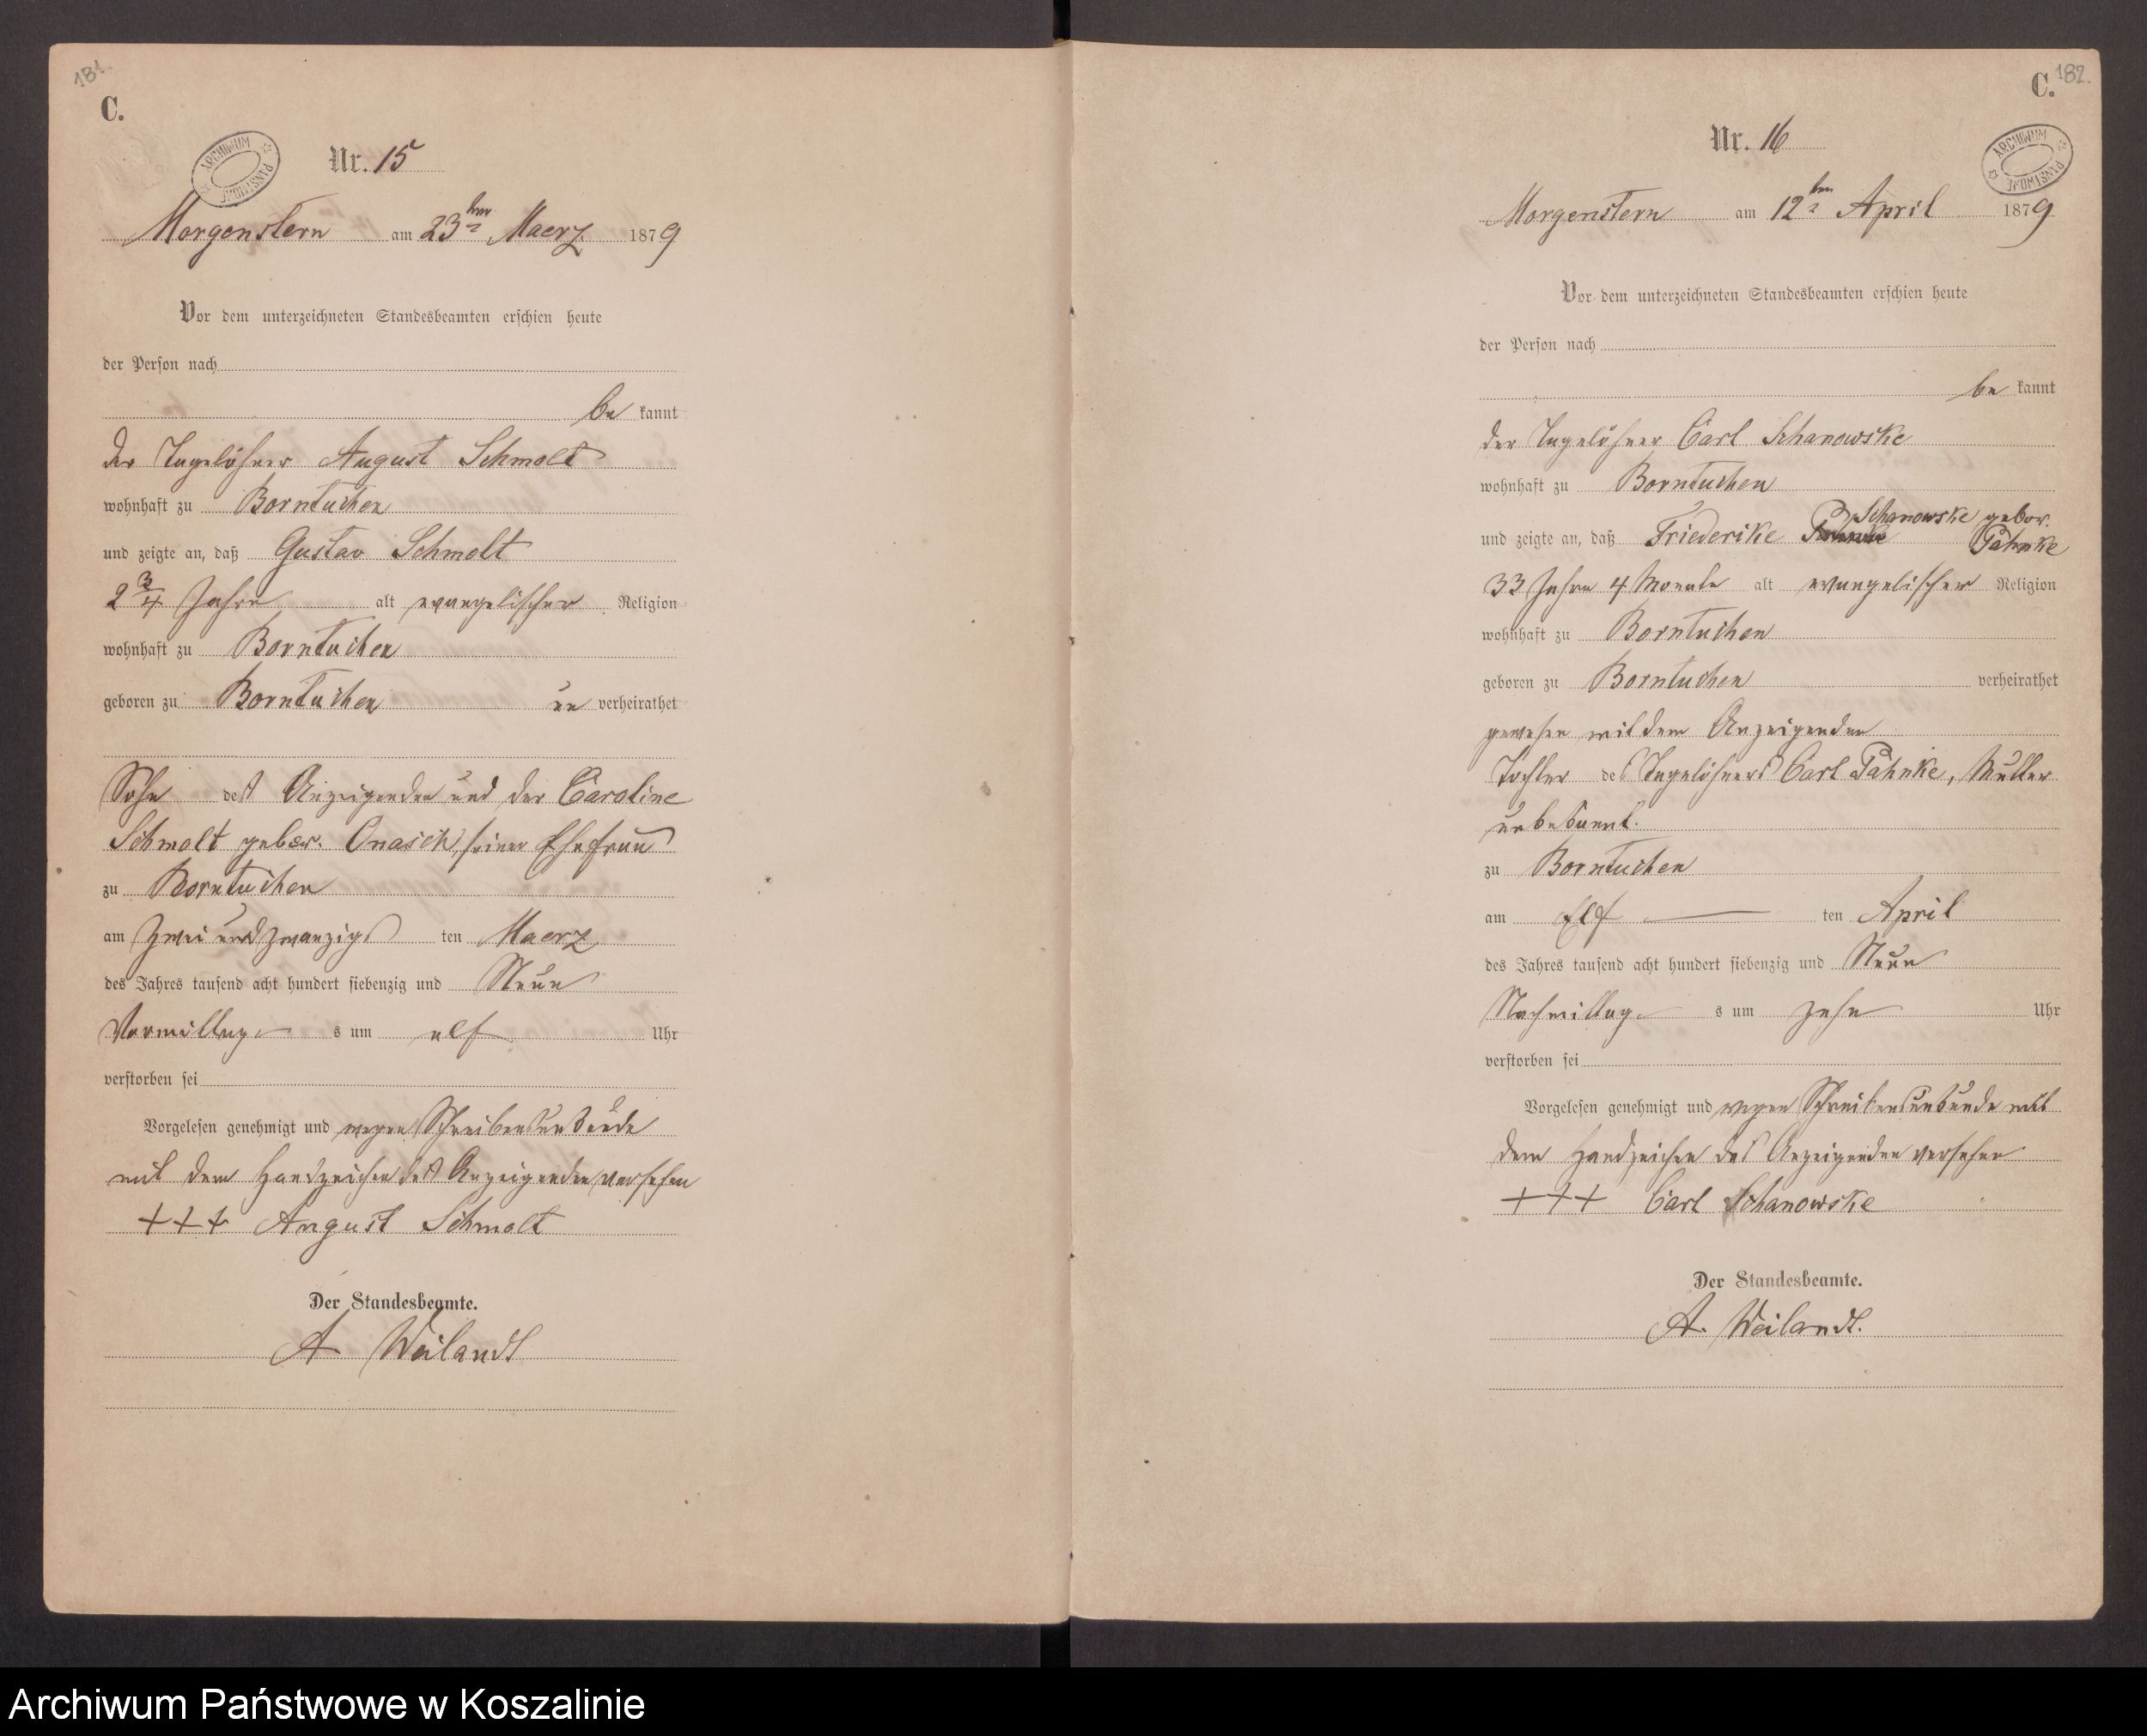 181.
C.
ARCHIWUM PAŃSTWOWE
Nr. 15
Morgenstern am 23ten Maerz 1879
Vor dem unterzeichneten Standesbeamten erschien heute
der Person nach
be kannt
der Tagelöhner August Schmolt
wohnhaft zu Borntuchen
und zeigte an, daß Gustav Schmolt
2 3/4 Jahre alt evangelischer Religion
wohnhaft zu Borntuchen
geboren zu Borntuchen un verheirathet
Sohn des Anzeigenden und der Caroline
Schmolt gebor. Onasch, seiner Ehefrau
zu Borntuchen
am zwei und zwanzigs ten Maerz
des Jahres tausend acht hundert siebenzig und Neun
Vormittag s um elf Uhr
verstorben sei
Vorgelesen genehmigt und wegen Schreibensunkunde
mit dem Handzeichen des Anzeigenden versehen
+++ August Schmolt
Der Standesbeamte.
A Weilandt
182.
C.
ARCHIWUM PAŃSTWOWE
Nr. 16
Morgenstern am 12ten April 1879
Vor dem unterzeichneten Standesbeamten erschien heute
der Person nach
be kannt
der Tagelöhner Carl Schanowske
wohnhaft zu Borntuchen
und zeigte an, daß Friederike Schanowske gebor. Pahnke
33 Jahre 4 Monate alt evangelischer Religion
wohnhaft zu Borntuchen
geboren zu Borntuchen verheirathet
gewesen mit dem Anzeigenden
Tochter des Tagelöhners Carl Pahnke, Mutter
unbekannt.
zu Borntuchen
am Elf ten April
des Jahres tausend acht hundert siebenzig und Neun
Nachmittag s um zehn Uhr
verstorben sei
Vorgelesen genehmigt und wegen Schreibensunkunde mit
dem Handzeichen des Anzeigenden versehen
+++ Carl Schanowske
Der Standesbeamte.
A. Weilandt.
Archiwum Państwowe w Koszalinie